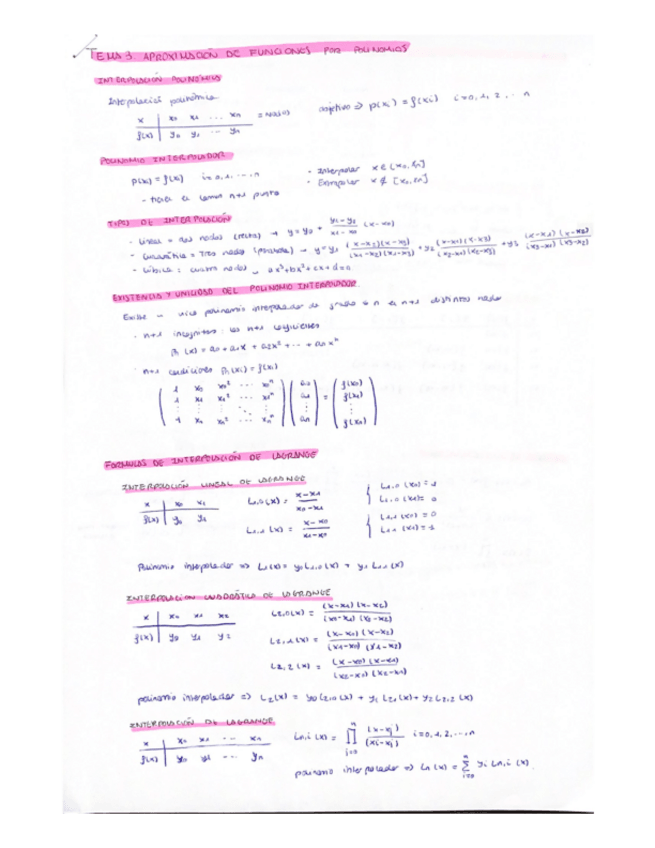 TEMA 3. APROXIMACIÓN DE FUNCIONES POR POLINOMIOS
INTERPOLACIÓN POLINÓMICA
Interpolación polinómica
x | x0 x1 ... xn = nodos
f(x) | y0 y1 ... yn
objetivo => p(xi) = f(xi) i=0,1,2,...n
POLINOMIO INTERPOLADOR
p(xi) = f(xi) i=0,1,...,n
- Interpolar x ∈ [x0,xn]
- Extrapolar x ∉ [x0,xn]
n+1 puntos
TIPOS DE INTERPOLACIÓN
- Lineal = dos nodos (recta) → y = y0 + (y1-y0)/(x1-x0) (x-x0)
- Cuadrática = Tres nodos (parábola) → y = y1 (x-x2)(x-x3)/(x1-x2)(x1-x3) + y2 (x-x1)(x-x3)/(x2-x1)(x2-x3) + y3 (x-x1)(x-x2)/(x3-x1)(x3-x2)
- Cúbica: cuatro nodos → ax³+bx²+cx+d=0
EXISTENCIA Y UNICIDAD DEL POLINOMIO INTERPOLADOR
Existe un único polinomio interpolador de grado ≤ n en n+1 distintos nodos
· n+1 incógnitas: los n+1 coeficientes
Pn(x) = a0 + a1x + a2x² + ... + anxⁿ
· n+1 condiciones Pn(xi) = f(xi)
( 1 x0 x0² ... x0ⁿ ) ( a0 ) = ( f(x0) )
( 1 x1 x1² ... x1ⁿ ) ( a1 ) ( f(x1) )
( ⋮ ⋮ ⋮ ⋱ ⋮ ) ( ⋮ ) ( ⋮ )
( 1 xn xn² ... xnⁿ ) ( an ) ( f(xn) )
FORMULAS DE INTERPOLACIÓN DE LAGRANGE
INTERPOLACIÓN LINEAL DE LAGRANGE
x | x0 x1
f(x) | y0 y1
L1,0(x) = (x-x1)/(x0-x1)
{ L1,0(x0) = 1
L1,0(x1) = 0
L1,1(x) = (x-x0)/(x1-x0)
{ L1,1(x0) = 0
L1,1(x1) = 1
Polinomio interpolador => L1(x) = y0 L1,0(x) + y1 L1,1(x)
INTERPOLACIÓN CUADRÁTICA DE LAGRANGE
x | x0 x1 x2
f(x) | y0 y1 y2
L2,0(x) = (x-x1)(x-x2)/(x0-x1)(x0-x2)
L2,1(x) = (x-x0)(x-x2)/(x1-x0)(x1-x2)
L2,2(x) = (x-x0)(x-x1)/(x2-x0)(x2-x1)
polinomio interpolador => L2(x) = y0 L2,0(x) + y1 L2,1(x) + y2 L2,2(x)
INTERPOLACIÓN DE LAGRANGE
x | x0 x1 ... xn
f(x) | y0 y1 ... yn
Ln,i(x) = ∏ j=0 n (x-xj)/(xi-xj) i=0,1,2,...,n
polinomio interpolador => Ln(x) = Σ i=0 n yi Ln,i(x)